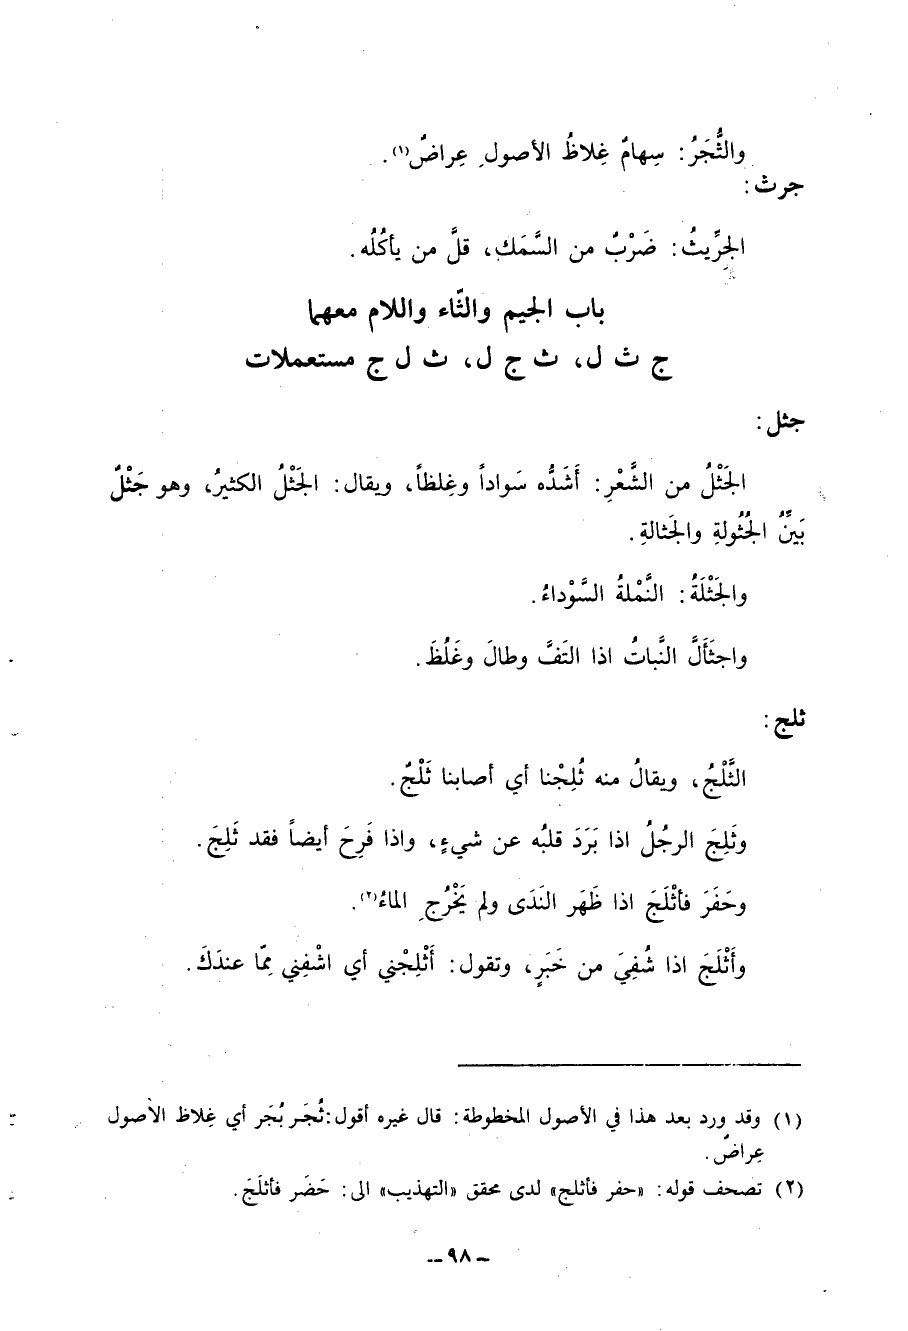 والثُّجَرُ: سِهامٌ غِلاظُ الأصولِ عِراضٌ(١).
جرث:
الجِرِّيثُ: ضَرْبٌ من السَّمَك، قلَّ من يأكُلُه.
باب الجيم والثّاء واللام معهما
ج ث ل، ث ج ل، ث ل ج مستعملات
جثل:
الجَثْلُ من الشَّعْرِ: أَشَدُّه سَواداً وغِلظاً، ويقال: الجَثْلُ الكثيرُ، وهو جَثْلٌ
بَيِّنُ الجُثُولةِ والجَثالةِ.
والجَثْلَةُ: النَّمْلةُ السَّوْداءُ.
واجثَأَلَّ النَّباتُ اذا التَفَّ وطالَ وغَلُظَ.
ثلج:
الثَّلْجُ، ويقالُ منه ثُلِجْنا أي أصابنا ثَلْجٌ.
وثَلِجَ الرجُلُ اذا بَرَدَ قلبُه عن شيءٍ، واذا فَرِحَ أيضاً فقد ثَلِجَ.
وحَفَرَ فأثْلَجَ اذا ظَهَر النَدَى ولم يَخْرُجِ الماءُ(٢).
وأَثْلَجَ اذا شُفِيَ من خَبَرٍ، وتقول: أَثْلِجْني أي اشْفِني مِمّا عندَكَ.
(١) وقد ورد بعد هذا في الأصول المخطوطة: قال غيره أقول: ثُجَر بُجَر أي غِلاظ الأصول
عِراضٌ.
(٢) تصحف قوله: «حفر فأثلج» لدى محقق «التهذيب» الى: حَضَر فأثلَجَ.
ـ ٩٨ ــ